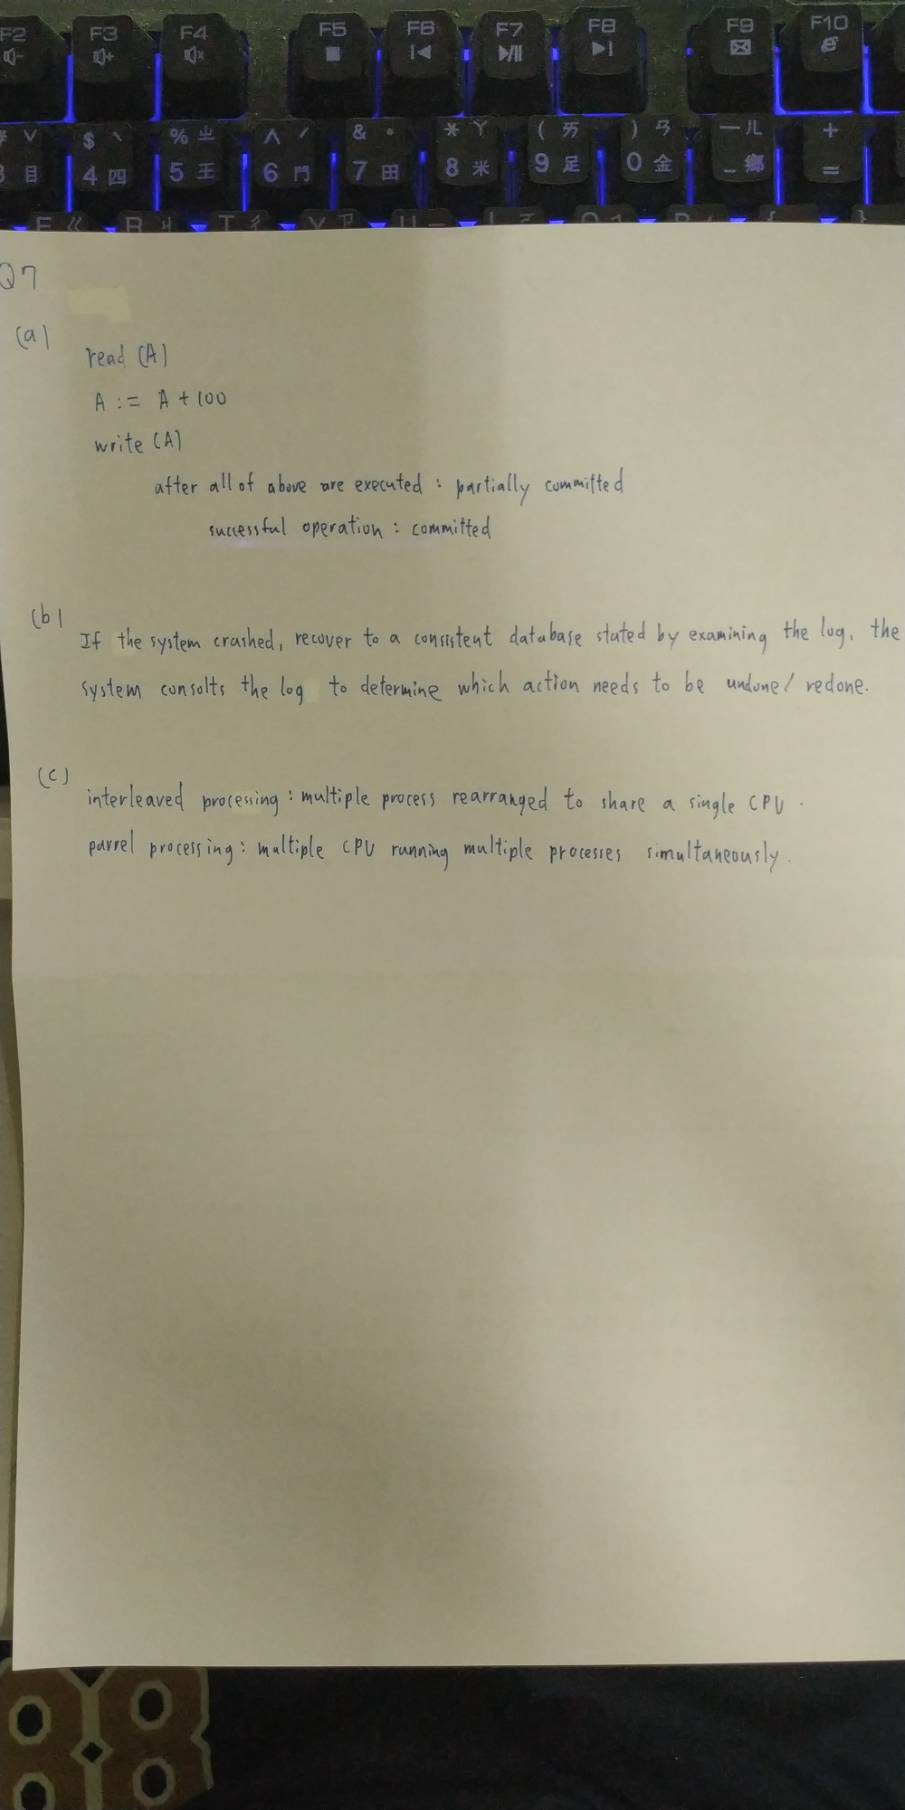 F2 F3 F4 F5 F6 F7 F8 F9 F10
# ˇ $ ˋ % ㄓ ^ ˊ & ˙ * ㄚ ( ㄞ ) ㄢ — ㄦ +
3 目 4 四 5 王 6 門 7 田 8 米 9 足 0 金 _ 鄉 =
Q7
(a)
read (A)
A := A + 100
write (A)
after all of above are executed : partially committed
successful operation : committed
(b)
If the system crashed, recover to a consistent database stated by examining the log, the
system consolts the log to determine which action needs to be undone/ redone.
(c)
interleaved processing : multiple process rearranged to share a single CPU.
parrel processing : multiple CPU running multiple processes simultaneously.